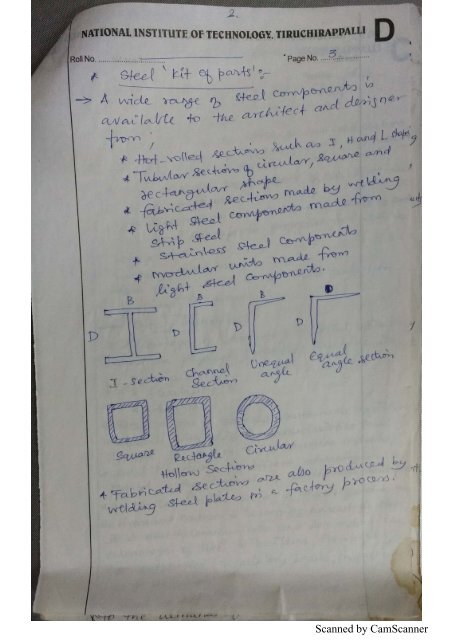 2.
NATIONAL INSTITUTE OF TECHNOLOGY, TIRUCHIRAPPALLI D
Roll No. Page No. 3
* Steel 'kit of parts' :-
→ A wide range of steel components is
available to the architect and designer
from ;
* Hot-rolled sections such as I, H and L shapes
* Tubular sections of circular, square and
rectangular shape
* fabricated sections made by welding
* light steel components made from
strip steel
* Stainless steel components
* modular units made from
light steel components.
B B B D
D D D D
I-section Channel Section Unequal angle Equal angle section
Square Rectangle Circular
Hollow Sections
* Fabricated sections are also produced by
welding steel plates in a factory process.
Scanned by CamScanner